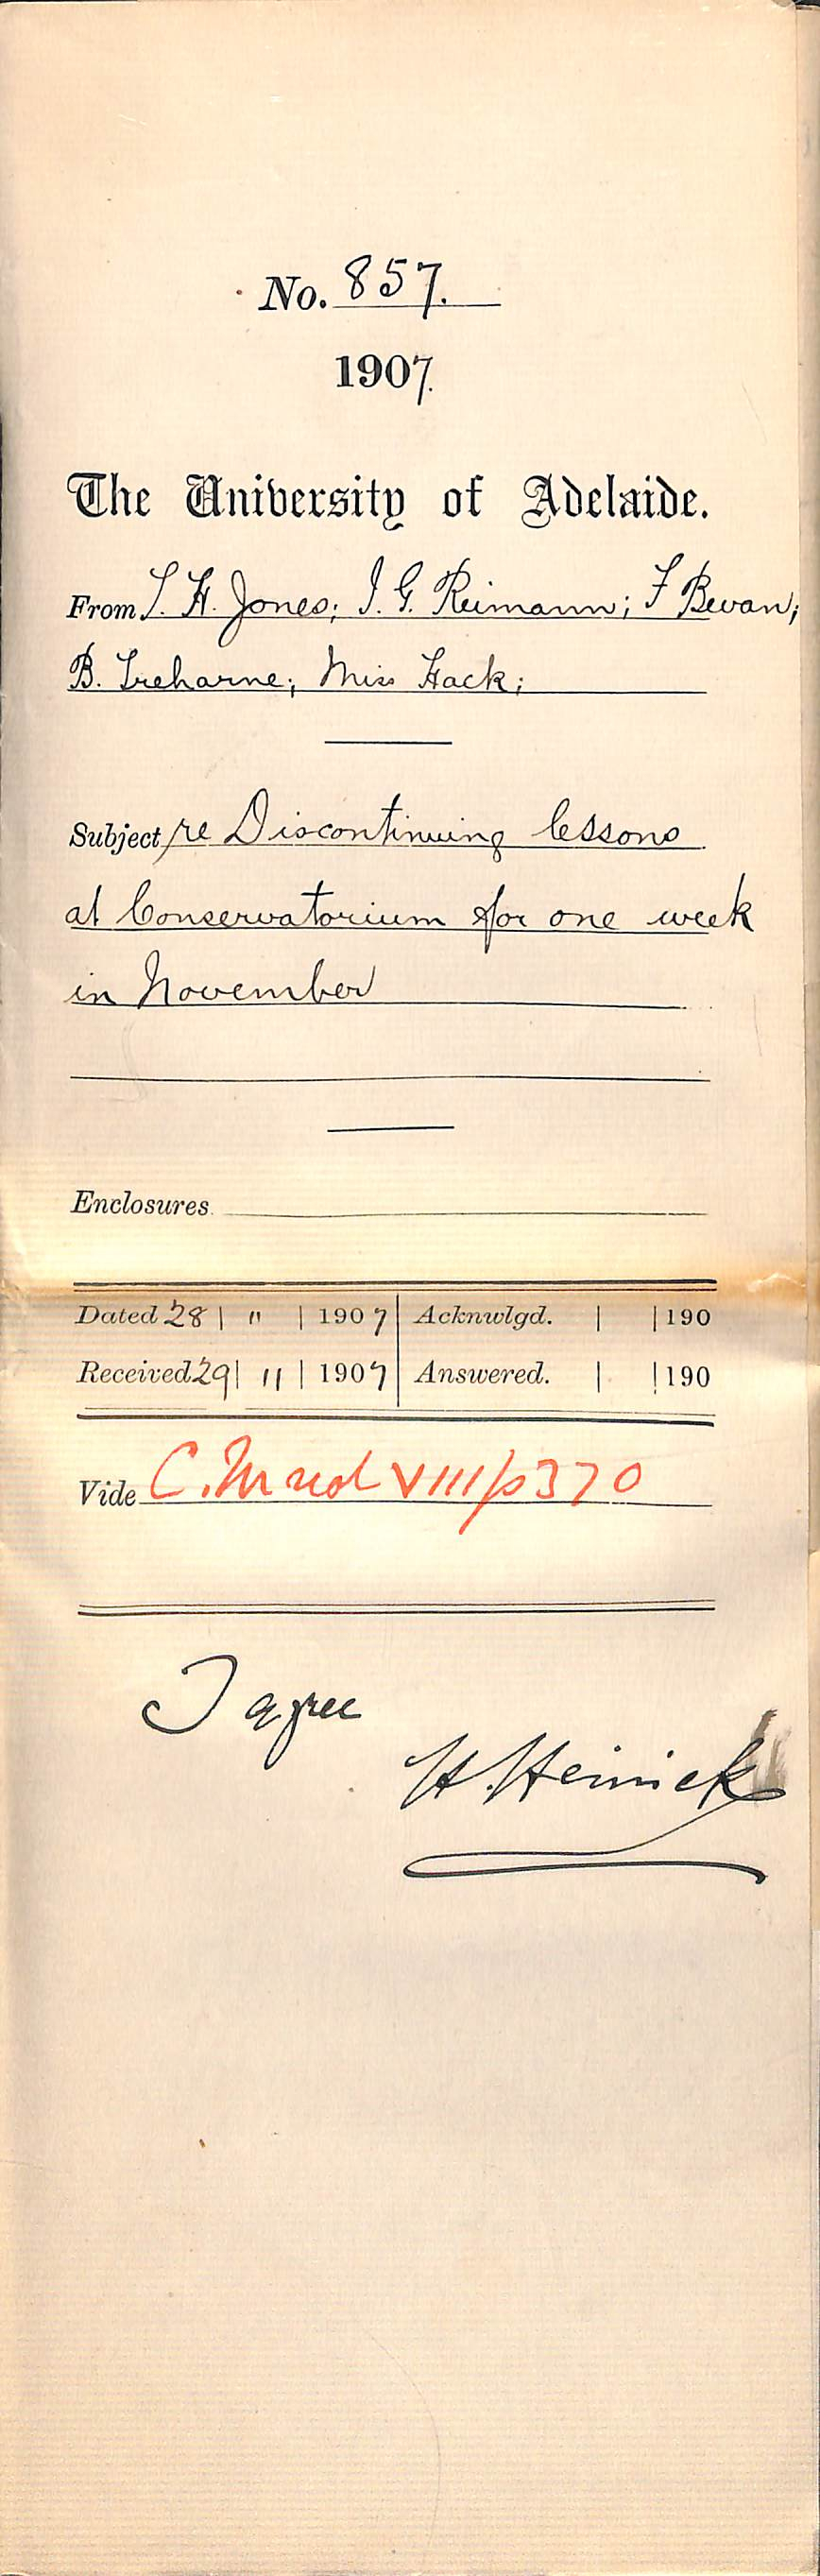 No. 857.
1907.
The University of Adelaide.
From T. H. Jones; I. G. Reimann; F Bevan;
B. Treharne; Miss Hack;
Subject re Discontinuing lessons
at Conservatorium for one week
in November
Enclosures
Dated 28 | 11 | 1907 | Acknwlgd. | | 190
Received 29 | 11 | 1907 | Answered. | | 190
Vide C. M VIII/p370
I agree
H. Heinicke